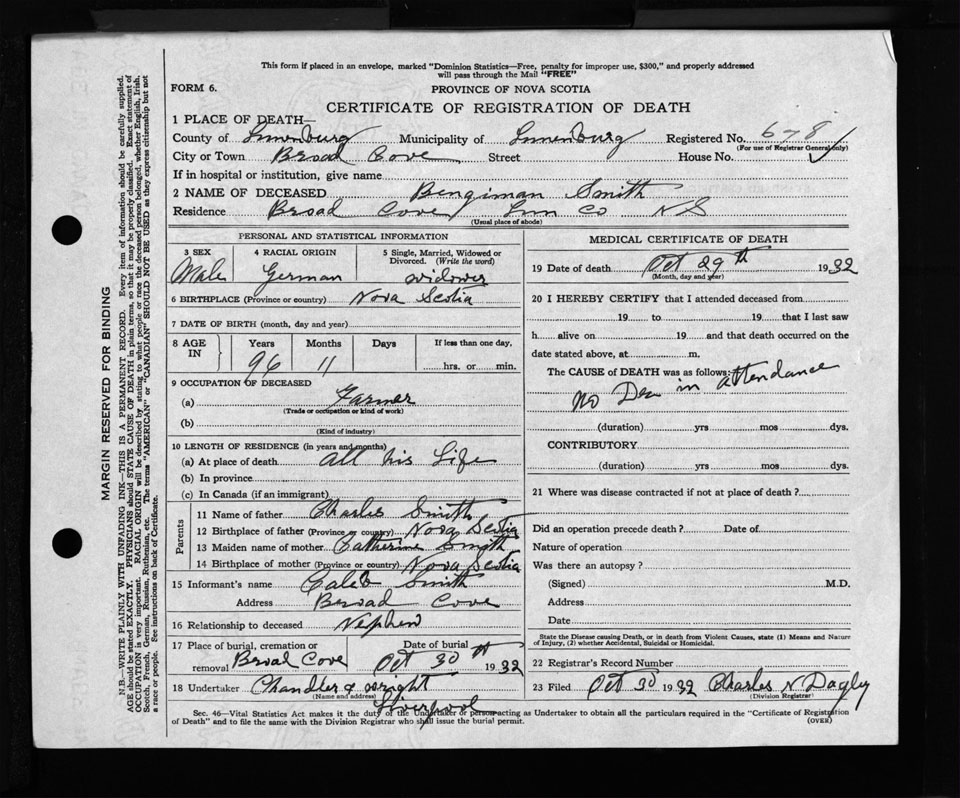 This form if placed in an envelope, marked "Dominion Statistics—Free, penalty for improper use, $300," and properly addressed
will pass through the Mail "FREE"
FORM 6. PROVINCE OF NOVA SCOTIA
CERTIFICATE OF REGISTRATION OF DEATH
1 PLACE OF DEATH—
County of Lunenburg Municipality of Lunenburg Registered No. 678
(For use of Registrar General only)
City or Town Broad Cove Street House No.
If in hospital or institution, give name
2 NAME OF DECEASED Bengiman Smith
Residence Broad Cove Lun Co NS
(Usual place of abode)
PERSONAL AND STATISTICAL INFORMATION
3 SEX 4 RACIAL ORIGIN 5 Single, Married, Widowed or
Divorced. (Write the word)
Male German widower
6 BIRTHPLACE (Province or country) Nova Scotia
7 DATE OF BIRTH (month, day and year)
8 AGE Years Months Days If less than one day,
IN 96 11 hrs. or min.
9 OCCUPATION OF DECEASED
(a) Farmer
(Trade or occupation or kind of work)
(b)
(Kind of industry)
10 LENGTH OF RESIDENCE (in years and months)
(a) At place of death all his Life
(b) In province
(c) In Canada (if an immigrant)
Parents
11 Name of father Charles Smith
12 Birthplace of father (Province or country) Nova Scotia
13 Maiden name of mother Catherine Smith
14 Birthplace of mother (Province or country) Nova Scotia
15 Informant's name Caleb Smith
Address Broad Cove
16 Relationship to deceased Nephew
17 Place of burial, cremation or Date of burial
removal Broad Cove Oct 30th 1932
18 Undertaker Chandler & wright
(Name and address)
Liverpool
MEDICAL CERTIFICATE OF DEATH
19 Date of death Oct 29th 1932
(Month, day and year)
20 I HEREBY CERTIFY that I attended deceased from
19 to 19 that I last saw
h alive on 19 and that death occurred on the
date stated above, at m.
The CAUSE of DEATH was as follows:
No in attendance
(duration) yrs mos dys.
CONTRIBUTORY
(duration) yrs mos dys.
21 Where was disease contracted if not at place of death?
Did an operation precede death? Date of
Nature of operation
Was there an autopsy?
(Signed) M.D.
Address
Date
State the Disease causing Death, or in death from Violent Causes, state (1) Means and Nature
of Injury, (2) whether Accidental, Suicidal or Homicidal.
22 Registrar's Record Number
23 Filed Oct 30 1932 Charles N Dagley
(Division Registrar)
Sec. 46—Vital Statistics Act makes it the duty of the Undertaker or person acting as Undertaker to obtain all the particulars required in the "Certificate of Registration
of Death" and to file the same with the Division Registrar who shall issue the burial permit. (OVER)
MARGIN RESERVED FOR BINDING
N.B.—WRITE PLAINLY WITH UNFADING INK—THIS IS A PERMANENT RECORD. Every item of information should be carefully supplied.
AGE should be stated EXACTLY. PHYSICIANS should STATE CAUSE OF DEATH in plain terms, so that it may be properly classified. Exact statement of
OCCUPATION is very important. RACIAL ORIGIN will be described by stating to what people or race the deceased person belonged, whether English, Irish,
Scotch, French, German, Russian, Ruthenian, etc. The terms "AMERICAN" or "CANADIAN" SHOULD NOT BE USED as they express citizenship but not
a race or people. See instructions on back of Certificate.